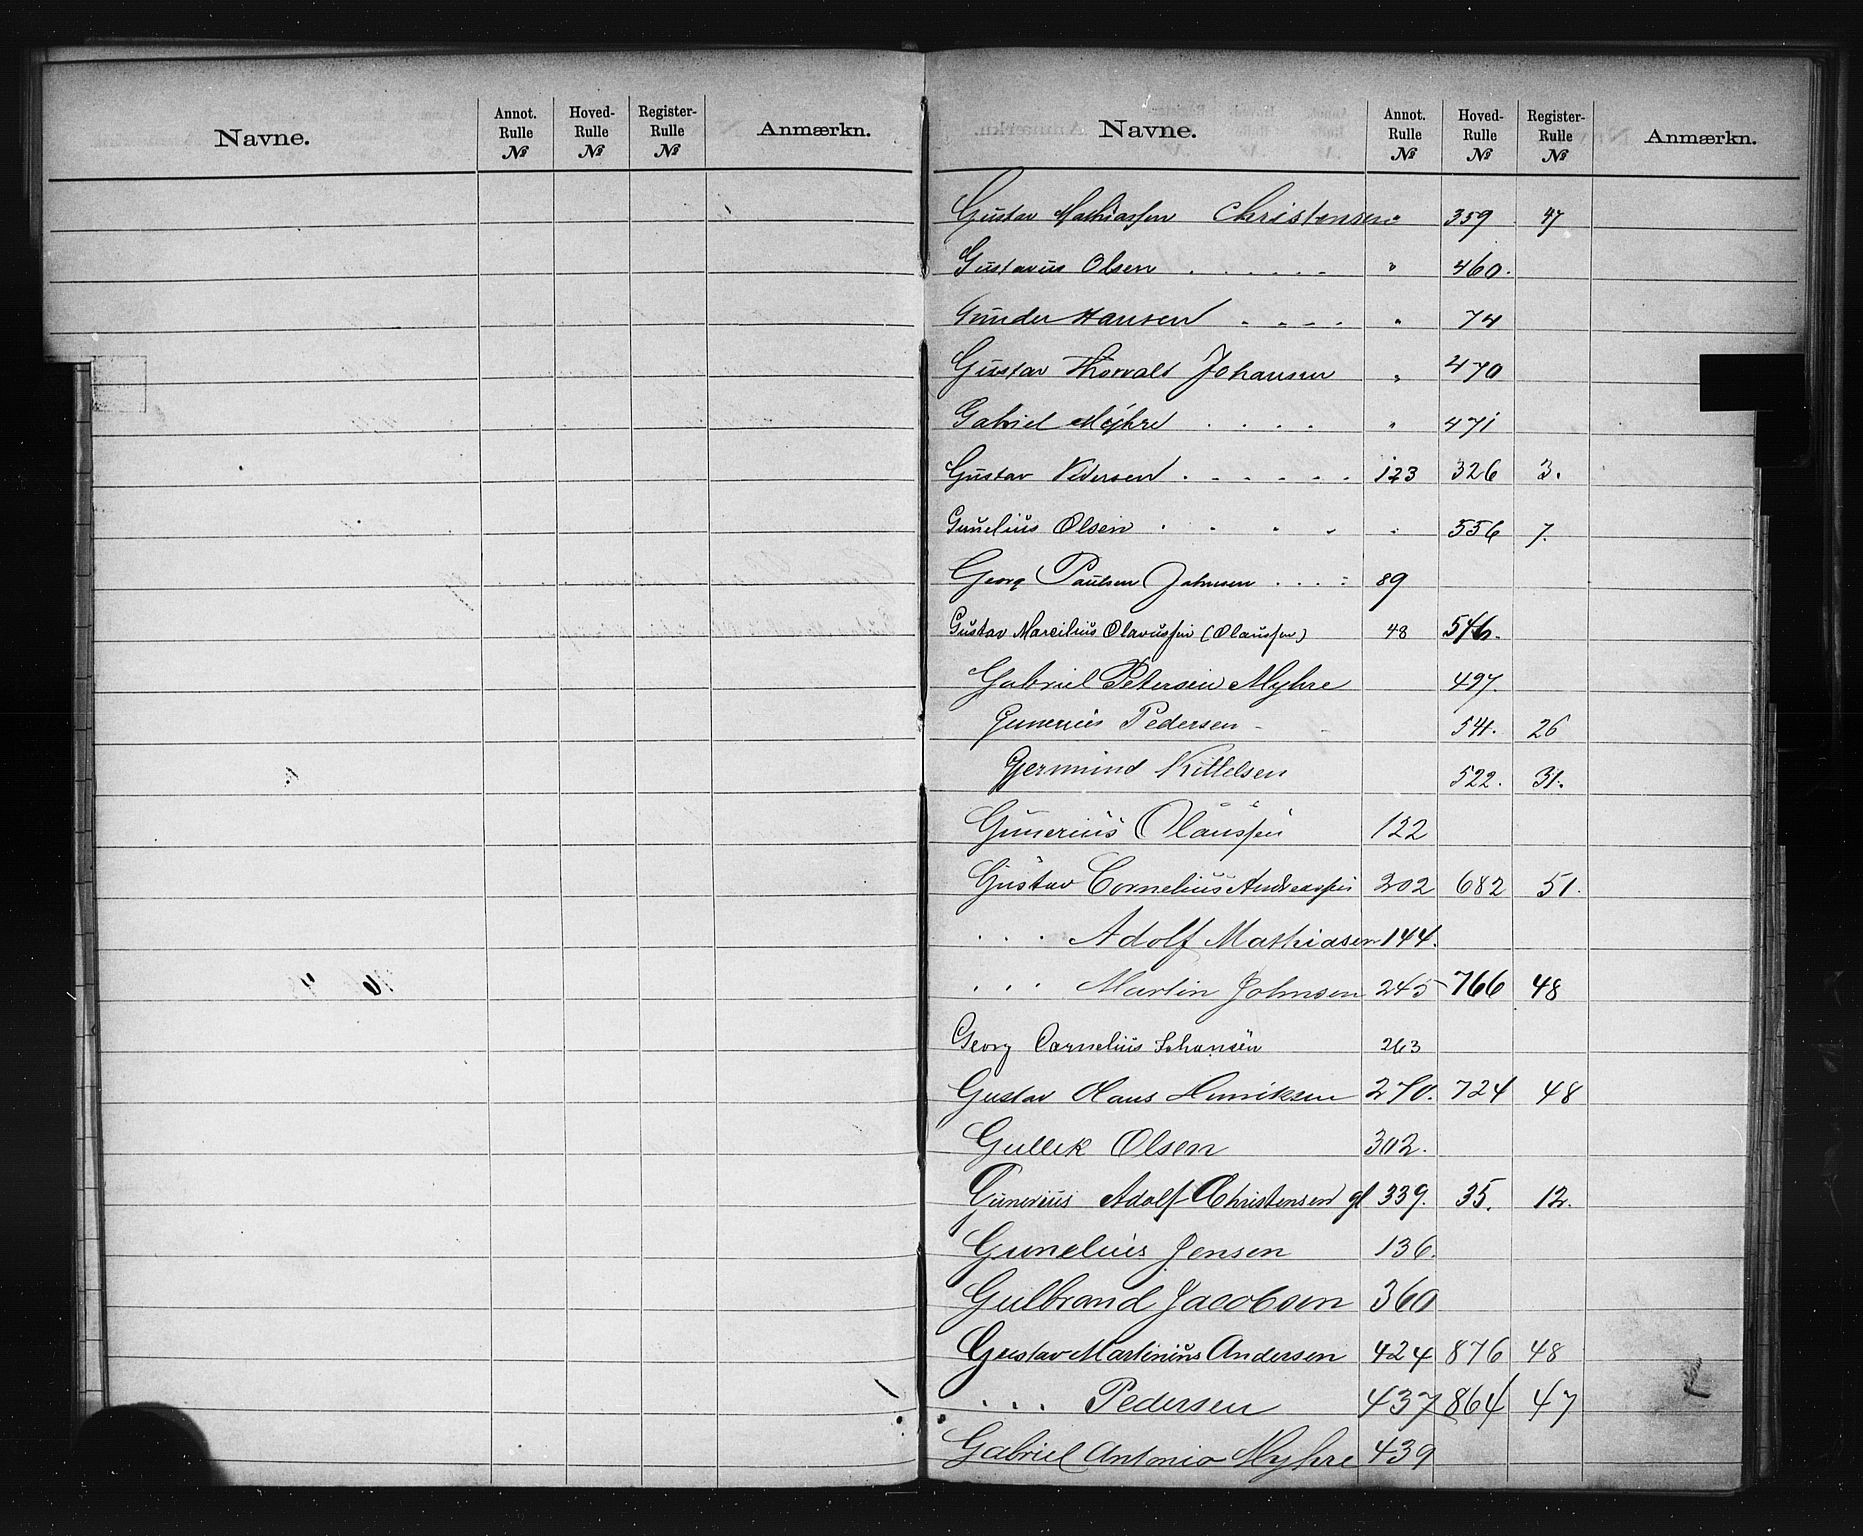 Navne. Annot. Rulle № Hoved-Rulle № Register-Rulle № Anmærkn.
Navne. Annot. Rulle № Hoved-Rulle № Register-Rulle № Anmærkn.
Gustav Mathiassen Christensen " 359 47
Gustavus Olsen . . . . . . " 460.
Gunder Hansen . . . . " 74
Gustav Thorvald Johansen " 470
Gabriel Myhre . . . . " 471
Gustav Pedersen . . . . . . 123 326 3.
Gunelius Olsen . . . . . 556 7.
Georg Paulsen Johnsen . . . . 89
Gustav Marcilius Olavussen (Olaussen) 48 546.
Gabriel Petersen Myhre 497.
Gunerius Pedersen 541. 26
Germund Kittelsen 522. 31.
Gunerius Olaussen 122
Gustav Cornelius Andreassen 202 682 51.
. . . Adolf Mathiasen 144.
. . . Martin Johnsen 245 766 48
Georg Cornelius Johansen 263
Gustav Hans Henriksen 270. 724 48
Gullik Olsen 302.
Gunerius Adolf Christensen gl 339. 35. 12.
Gunelius Jensen 136.
Gulbrand Jacobsen 360
Gustav Martinius Andersen 424 876 48
. . . Pedersen 437 864 47
Gabriel Antonio Myhre 439